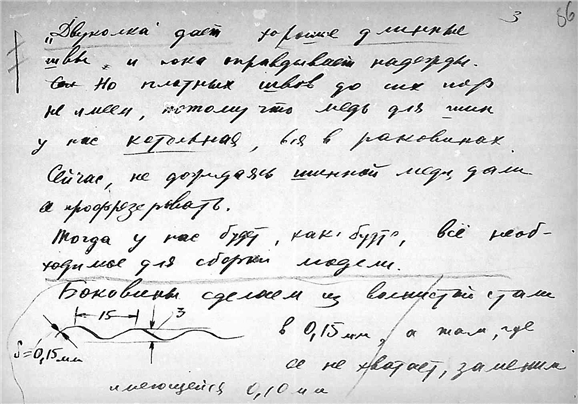 3 86
„Двуколка" даёт хорошие длинные
швы, и пока оправдывает надежды.
Но плотных швов до сих пор
не имеем, потому что медь для шин
у нас котельная, вся в раковинах.
Сейчас, не дожидаясь шинной меди, дали
её профрезеровать.
Тогда у нас будет, как будто, всё необ-
ходимое для сборки модели.
Боковины сделаем из волнистой стали
15 3
в 0,15 мм, а там, где
δ = 0,15 мм
её не хватает, заменим
имеющейся 0,10 мм